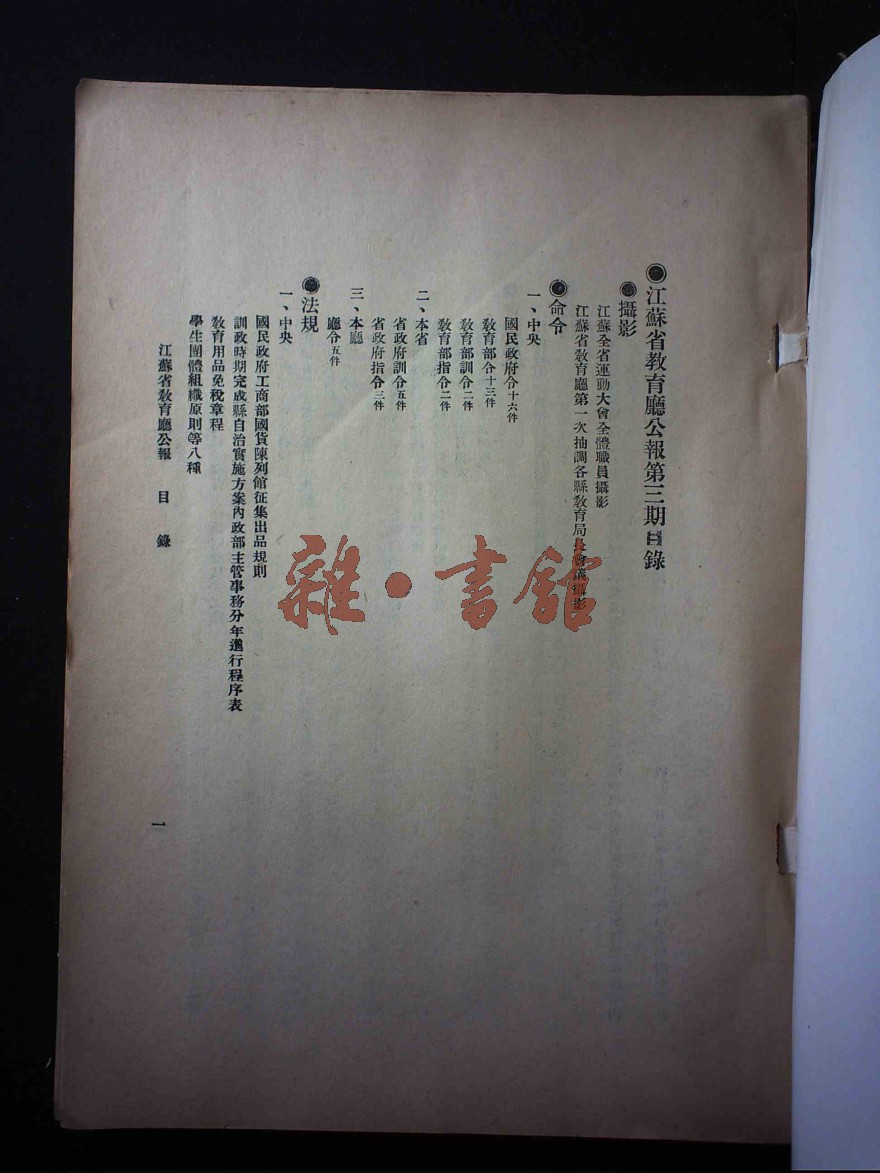 ◉江蘇省教育廳公報第三期目錄
◉攝影
江蘇全省運動大會全體職員攝影
江蘇省教育廳第一次抽調各縣教育局長會議攝影
◉命令
一、中央
國民政府令十六件
教育部令十三件
教育部訓令二件
教育部指令二件
二、本省
省政府訓令五件
省政府指令三件
三、本廳
廳令五件
◉法規
一、中央
國民政府工商部國貨陳列館征集出品規則
訓政時期完成縣自治實施方案內政部主管事務分年進行程序表
教育用品免稅章程
學生團體組織原則等八種
江蘇省教育廳公報 目錄
一
雜·書館